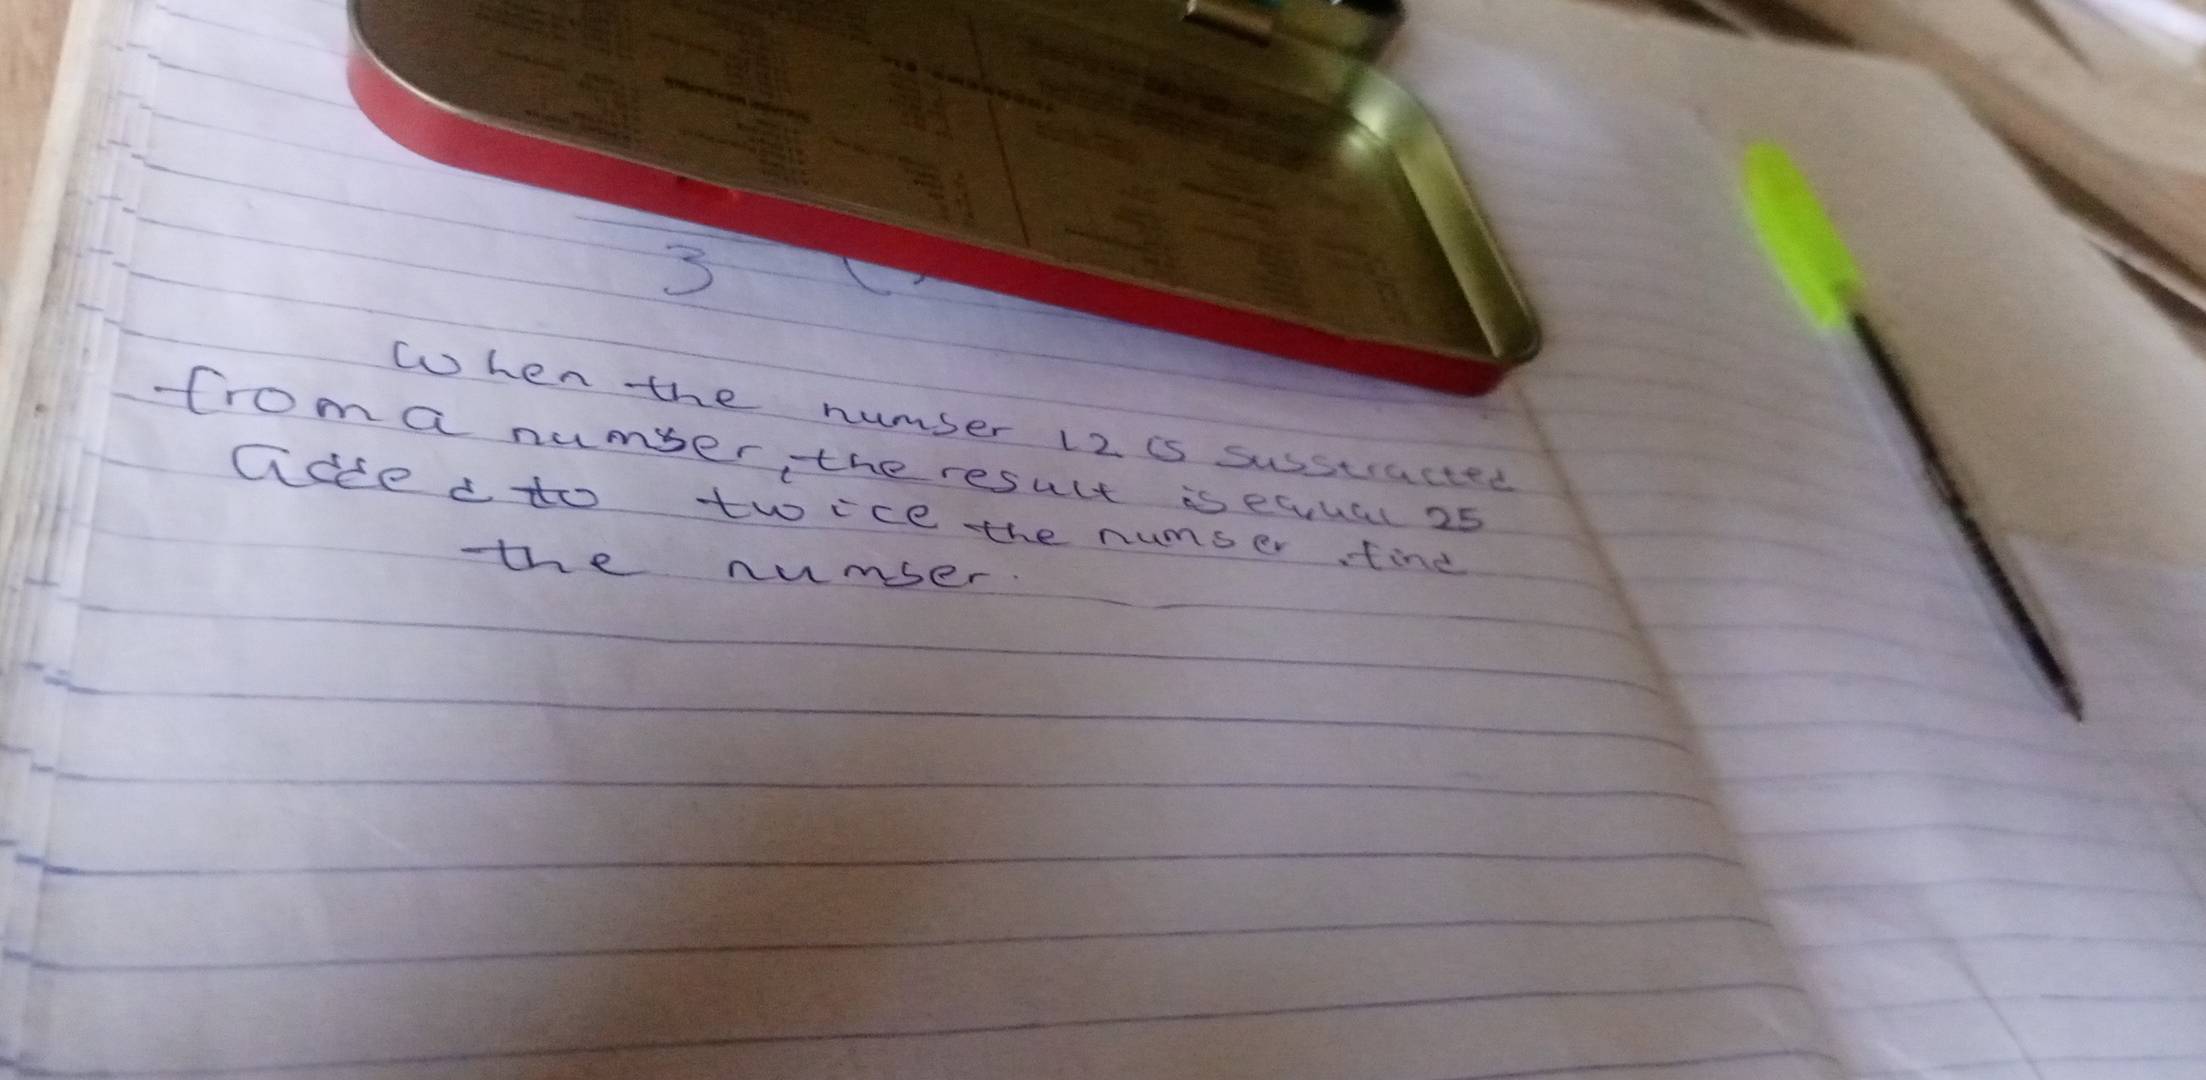 3
When the number 12 is subtracted
from a number, the result is equal 25
added to twice the number. find
the number.